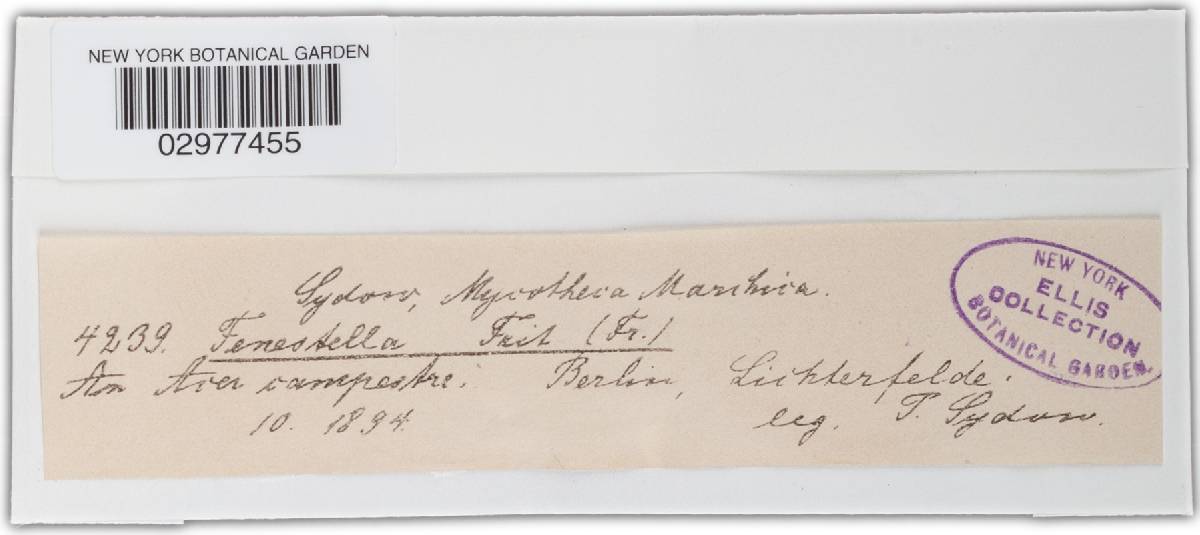 NEW YORK BOTANICAL GARDEN
02977455
Sydow, Mycotheca Marchica.
4239. Fenestella Feit (Fr.)
An Acer campestre. Berlin, Lichterfelde.
10. 1894. leg. P. Sydow.
NEW YORK
ELLIS
COLLECTION
BOTANICAL GARDEN